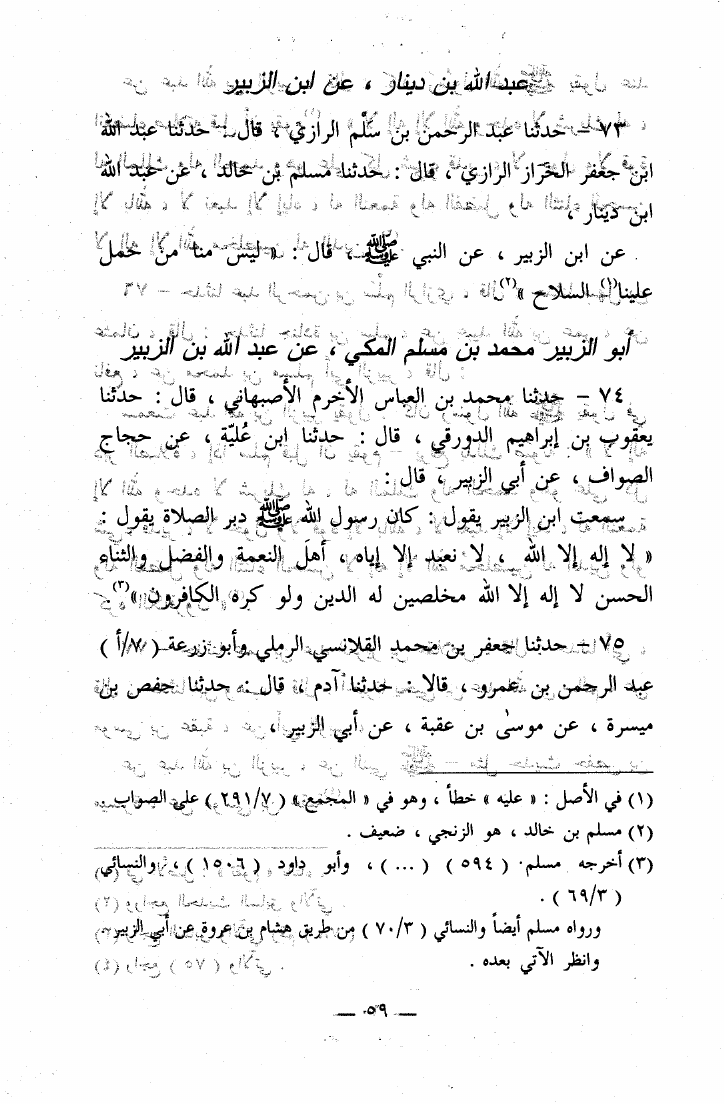 عبد الله بن دينار ، عن ابن الزبير
٧٣ – حدثنا عبد الرحمن بن سَلْم الرازي ، قال : حدثنا عبد الله
ابن جعفر الخراز الرازي ، قال : حدثنا مسلم بن خالد ، عن عبد الله
ابن دينار ،
عن ابن الزبير ، عن النبي ﷺ ، قال : « ليس منا من حمل
علينا(١) السلاح »(٢) .
أبو الزبير محمد بن مسلم المكي ، عن عبد الله بن الزبير
٧٤ – حدثنا محمد بن العباس الأخرم الأصبهاني ، قال : حدثنا
يعقوب بن إبراهيم الدورقي ، قال : حدثنا ابن عُليّة ، عن حجاج
الصواف ، عن أبي الزبير ، قال :
سمعت ابن الزبير يقول : كان رسول الله ﷺ دبر الصلاة يقول :
« لا إله إلا الله ، لا نعبد إلا إياه ، أهل النعمة والفضل والثناء
الحسن لا إله إلا الله مخلصين له الدين ولو كره الكافرون »(٣) .
٧٥ – حدثنا جعفر بن محمد القلانسي الرملي وأبو زرعة ( ٧/أ )
عبد الرحمن بن عمرو ، قالا : حدثنا آدم ، قال : حدثنا حفص بن
ميسرة ، عن موسىٰ بن عقبة ، عن أبي الزبير ،
(١) في الأصل : « عليه » خطأ ، وهو في « المجمع » ( ٢٩١/٧ ) على الصواب .
(٢) مسلم بن خالد ، هو الزنجي ، ضعيف .
(٣) أخرجه مسلم ( ٥٩٤ ) ( ... ) ، وأبو داود ( ١٥٠٦ ) ، والنسائي
( ٦٩/٣ ) .
ورواه مسلم أيضاً والنسائي ( ٧٠/٣ ) من طريق هشام بن عروة عن أبي الزبير .
وانظر الآتي بعده .
— ٥٩ —